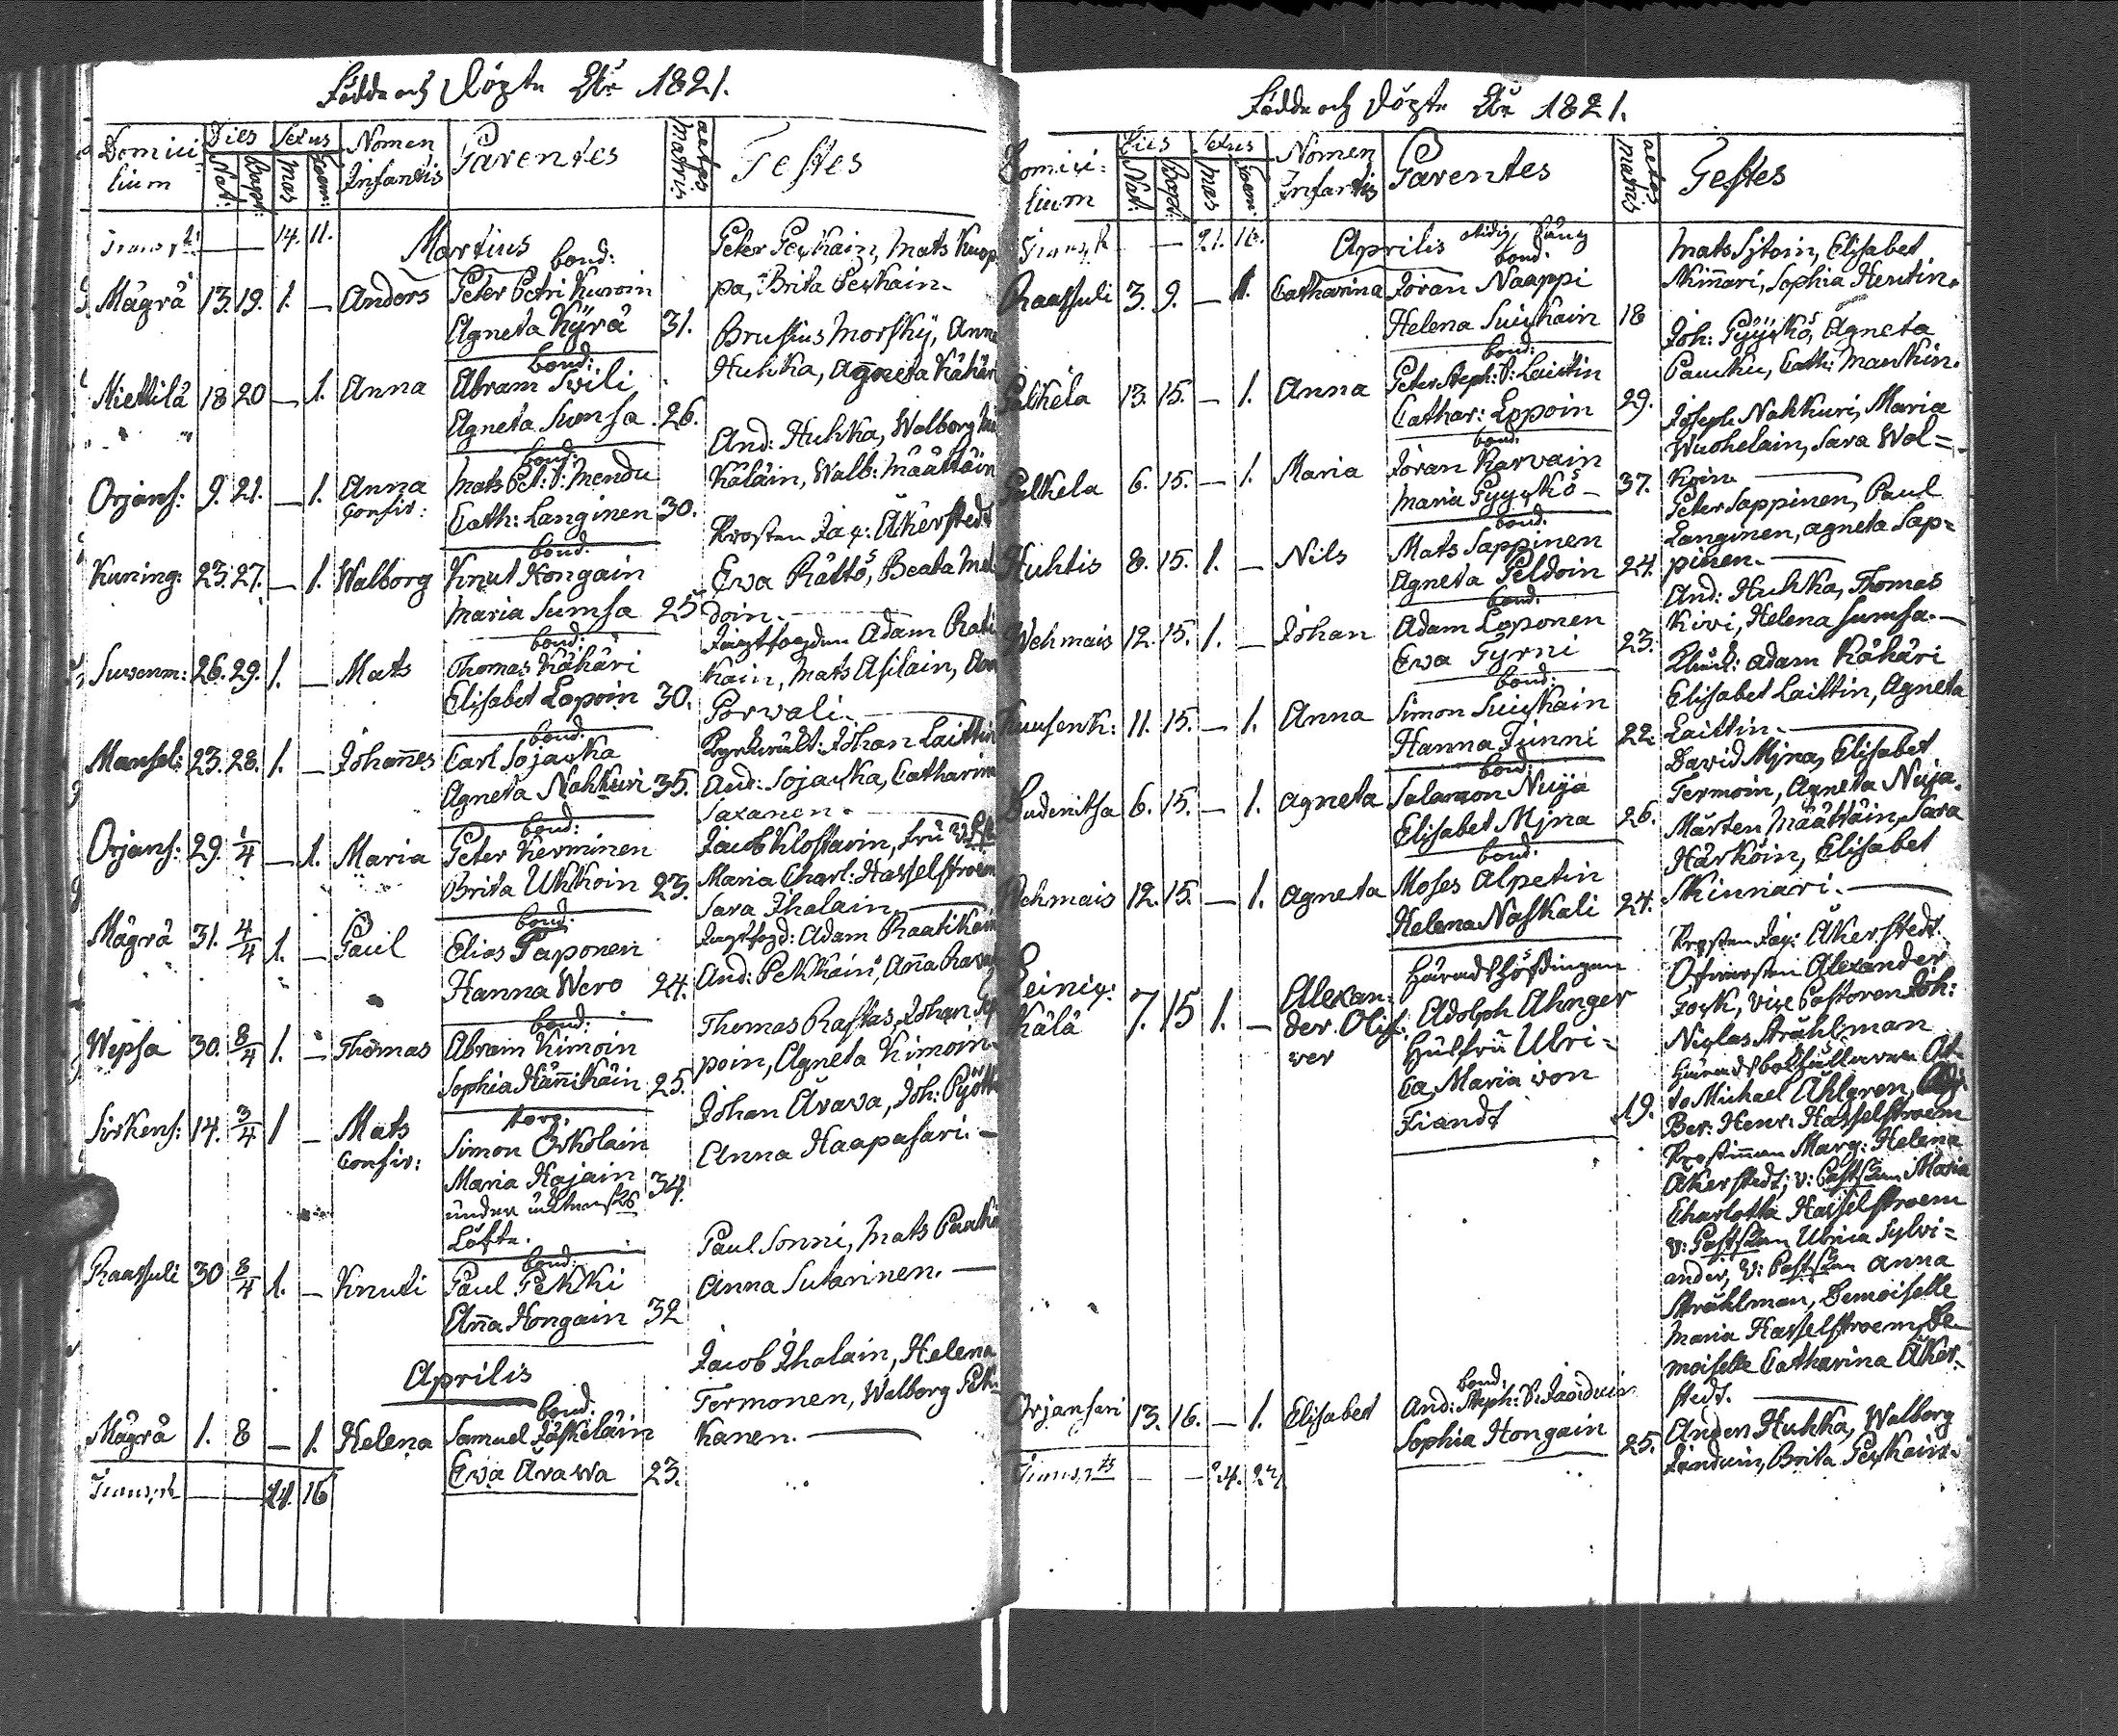 Födde och Döpte År 1821.
Domici- Dies Sexus Nomen Parentes aetas Testes
lium Nat: Bapt: Mas Foem: Infantis Matris
Transp. — 14. 11.
Martius
bond:
Mägrä 13. 19. 1. — Anders Peter Petri Kuroin
Agneta Kyrä 31.
Peter Peckain, Mats Knop-
pa, Brita Peckain.
bond:
Miettilä 18 20 — 1. Anna Abram Svili
Agneta Sumsa 26.
Brusius Morsky, Anna
Huhka, Agneta Kähäri
bond:
Orjans: 9. 21. — 1. Anna Mats Pet: S: Mendu
Confir: Cath: Langinen 30.
And: Huhka, Walborg
Käläin, Walb: Määttäin
bond:
Kuning: 23. 27. — 1. Walborg Knut Hongain
Maria Sumsa 25
Prosten Jac: Åkerstedt
Ewa Rättö, Beata
doin.
bond:
Suvenm: 26. 29. 1. — Mats Thomas Kähäri
Elisabet Lopoin 30.
Jagtfogden Adam Rati
kain, Mats Asilain,
Porvali.
bond:
Mansel: 23. 28. 1. — Johannes Carl Sojacka
Agneta Nahkuri 35.
Johan Laittin
And: Sojacka, Catharina
Saxanen.
bond:
Orjans: 29. 1/4 — 1. Maria Peter Kerminen
Brita Uhkoin 23.
Jacob Klostarin, fru
Maria Charl: Hasselstroem
Sara Ihalain.
bond:
Mägrä 31. 4/4 1. — Paul Elias Paponen
Hanna Wero 24.
Jagtfogd: Adam Raatikain
And: Pekkain, Anna
bond:
Wepsa 30. 8/4 1. — Thomas Abram Kimoin
Sophia Hännikäin 25.
Thomas Rastas, Johan
poin, Agneta Kimoin.
torp.
Sirkens: 14. 3/4 1 — Mats Simon Orkolain
Confir: Maria Hajain 34.
under
Löfte.
Johan Ärava, Joh: Pyöttä
Anna Haapasari.
bond:
Raassuli 30 8/4 1. — Knuti Paul Pekki
Anna Hongain 32
Paul Sonni, Mats
Anna Sutarinen.
Aprilis
bond.
Mägrä 1. 8 — 1. Helena Samuel Jäskeläin
Ewa Ärawa 23.
Jacob Ihalain, Helena
Termonen, Walborg Pek-
kanen.
Transp. — 21. 16
Födde och Döpte År 1821.
Domici- Dies Sexus Nomen Parentes aetas Testes
lium Nat: Bapt: Mas Foem: Infantis Matris
Transp. — 21. 16.
Aprilis
bond.
Raassuli 3. 9. — 1. Catharina Jöran Naappi
Helena Suickain 18
Mats Sitoin, Elisabet
Kinnari, Sophia Hentin.
bond:
Palkela 13. 15. — 1. Anna Peter Steph: S: Laittin
Cathar: Lopoin 29.
Joh: Pyyckö, Agneta
Paucku, Cath: Manckin.
bond.
Palkela 6. 15. — 1. Maria Jöran Karvain
Maria Pyyckö 37.
Joseph Nahkuri, Maria
Wuohelain, Sara Wal=
koin.
bond.
Huhtis 8. 15. 1. — Nils Mats Sappinen
Agneta Peldoin 24.
Peter Sappinen, Paul
Langinen, Agneta Sap=
pinen.
bond.
Wehmais 12. 15. 1. — Johan Adam Loponen
Ewa Tyrni 23.
And: Huhka, Thomas
Kivi, Helena Sumsa.
bond:
Kuusenh: 11. 15. — 1. Anna Simon Suickain
Hanna Junni 22.
Adam Kähäri
Elisabet Laittin, Agneta
Laittin.
bond.
Sudenitsa 6. 15. — 1. Agneta Salamon Nuija
Elisabet Mjna 26.
David Mjna, Elisabet
Termoin, Agneta Nuija.
bond.
Wehmais 12. 15. — 1. Agneta Moses Alpetin
Helena Naskali 24.
Mårten Määttäin, Sara
Härköin, Elisabet
Kinnari.
Leinig:
kälä 7. 15 1. — Alexan-
der Oli-
ver
Häradshöfdingen
Adolph Ahnger
Hulfru Ulri-
ca Maria von
Fiandt 19.
Prosten Jac: Åkerstedt
Öfversten Alexander
Fock, Vice Pastoren Joh:
Niclas Stråhlman
Häradsbokhållaren
Michael Åhlgren,
Ber: Henr: Hasselstroem
Prostinnan Marg: Helena
Åkerstedt, v: Maria
Charlotta Hasselstroem
v: Ulrica Sylvi=
ander, v: Anna
Stråhlman, Demoiselle
Maria Hasselstroem, De
moiselle Catharina Åker-
stedt.
bond.
Orjansari 13. 16. — 1. Elisabet And: Steph: S: Jaoiduin
Sophia Hongain 25.
Anders Huhka, Walborg
Jänduin, Brita Peckain.
Transp. — — 24. 24